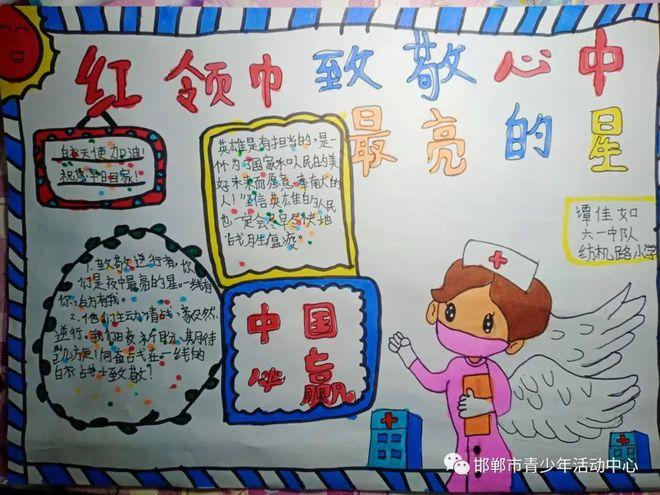 红领巾致敬心中
最亮的星
白衣天使加油!
祝您早日回家!
英雄是有担当的,是
作为了国家和人民的美
好未来而愿意的
人!"坚信英雄的人民
也一定会尽快地
战胜瘟疫。
谭佳如
六一中队
纺机路小学
1.致敬逆行者,你
们是夜中最亮的星。一线有
你,后方有我。
2.他们主动请战,毅然
逆行。我们日夜,期待
向奋战在一线的
白衣战士致敬!
中国
必赢
邯郸市青少年活动中心